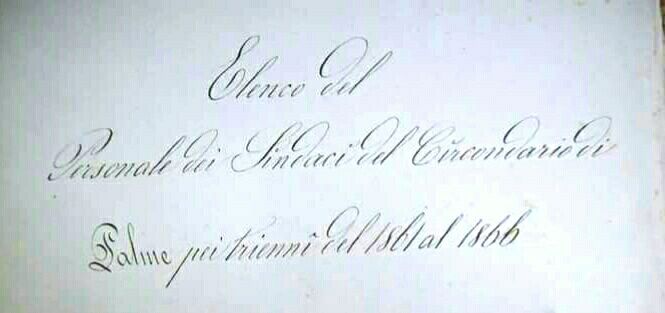 Elenco del
Personale dei Sindaci del Circondario di
Palme pei trienni del 1861 al 1866